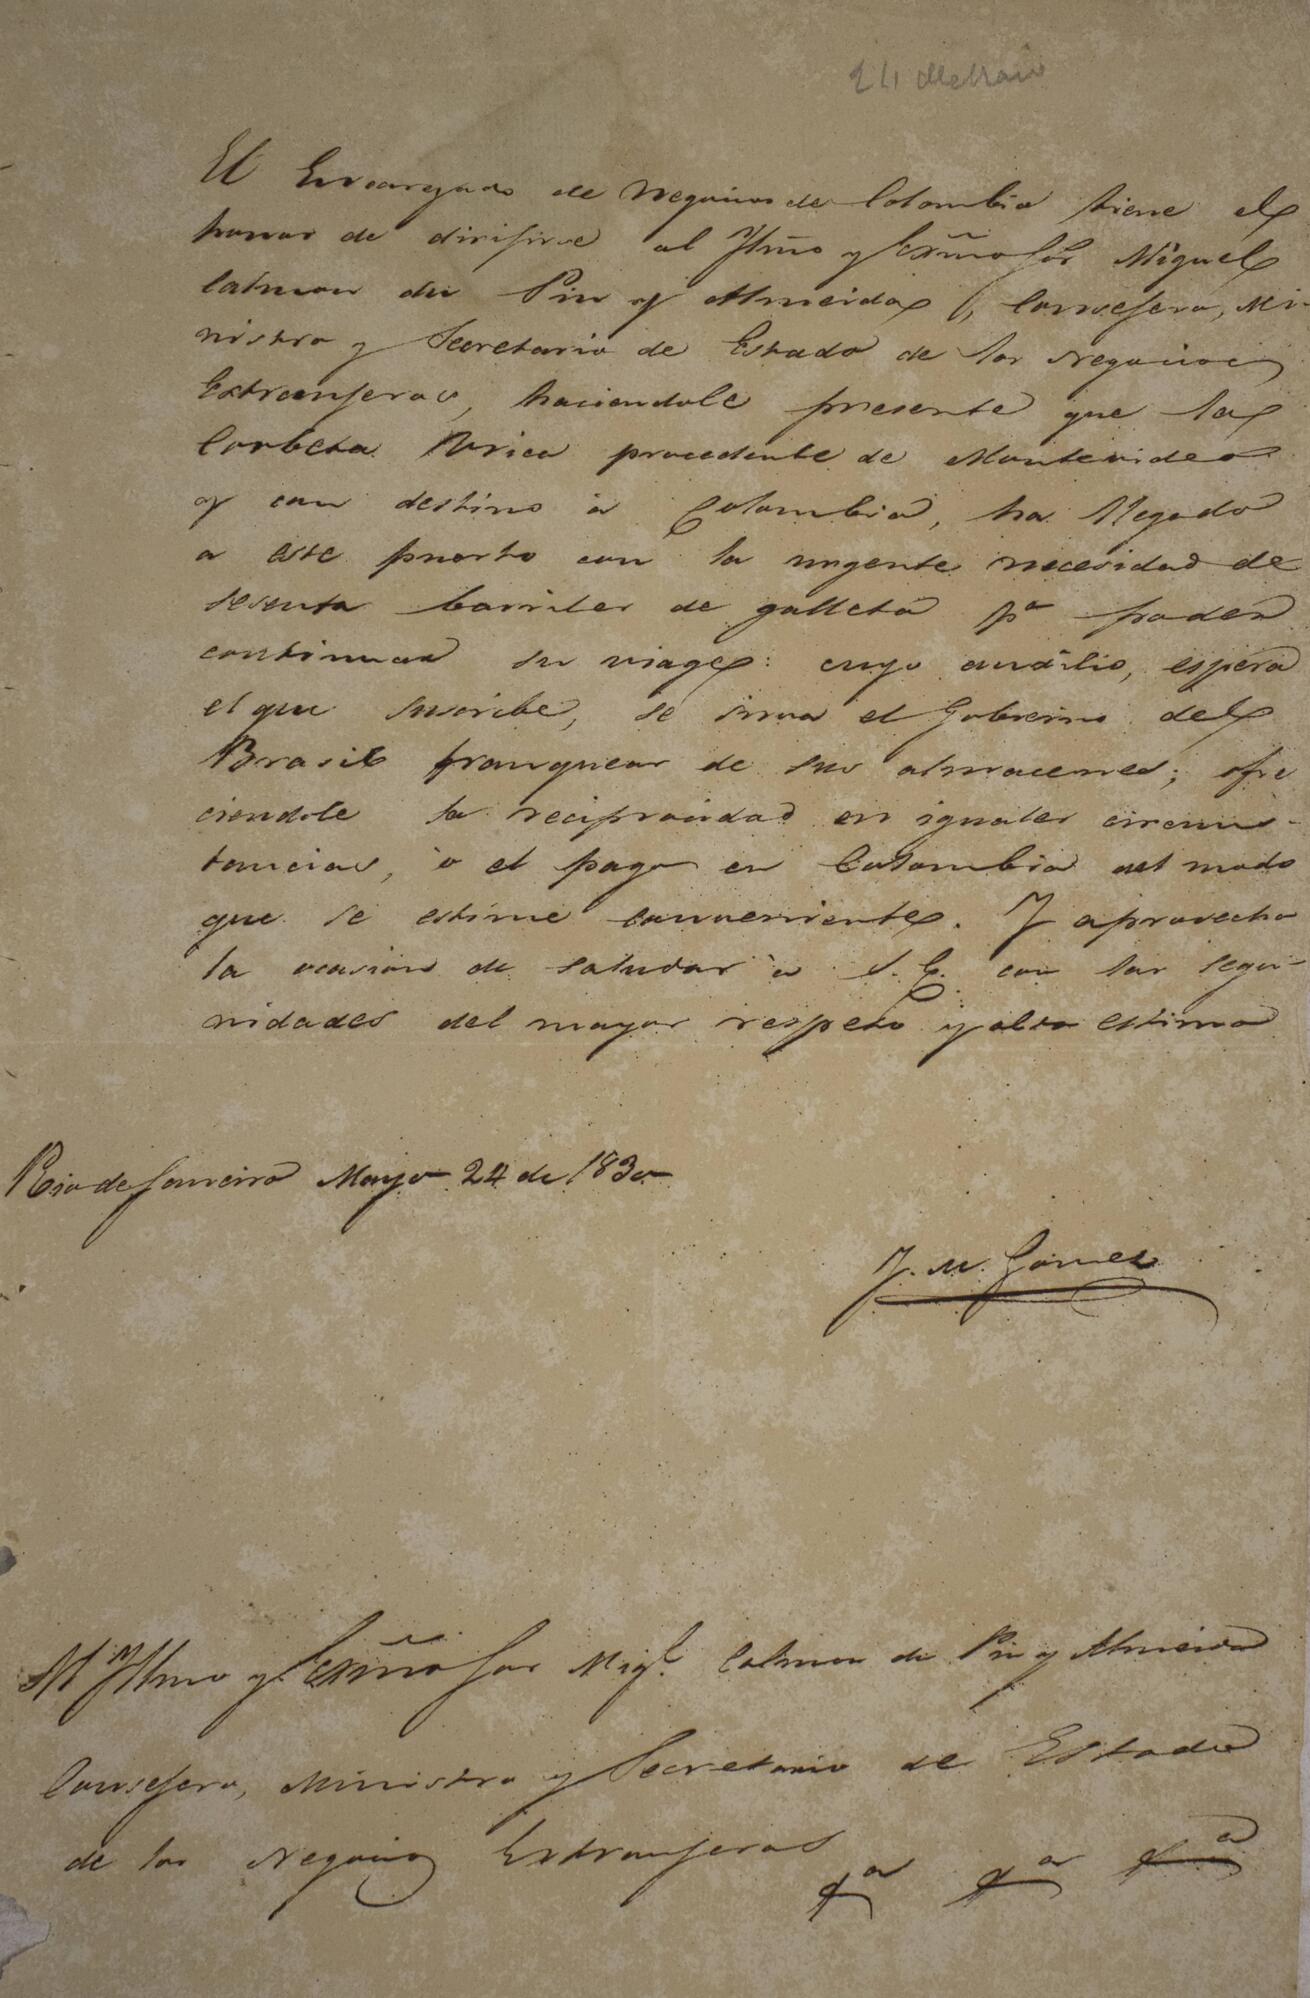 24 de Maio
El Encargado de Negocios de Colombia tiene el
honor de dirijirse al Ylmo y Exmo Sör Miguel
Calmon du Pin y Almeida, Consejero, Mi-
nistro y Secretario de Estado de los Negocios
Extranjeros, haciendole presente que la
Corbeta Urica procedente de Montevideo
y con destino à Colombia, ha llegado
a este puerto con la urgente necesidad de
sesenta barriles de galleta pª poder
continuar su viage: cuyo auxilio, espera
el que suscribe, se sirva el Gobierno del
Brasil franquear de sus almacenes; ofre
ciendole la reciprocidad en iguales circuns-
tancias, ò el pago en Colombia del modo
que se estime conveniente. Y aprovecha
la ocasion de saludar à S. E. con las segu-
ridades del mayor respeto y alta estima
Rio de Janeiro Mayo 24 de 1830
J. M. Gomez
Al Yllmo y Exmõ Sor Migl. Calmon du Pin y Almeida
Consejero, Ministro y Secretario de Estado
de los Negocios Extranjeros
&ª &ª &ª